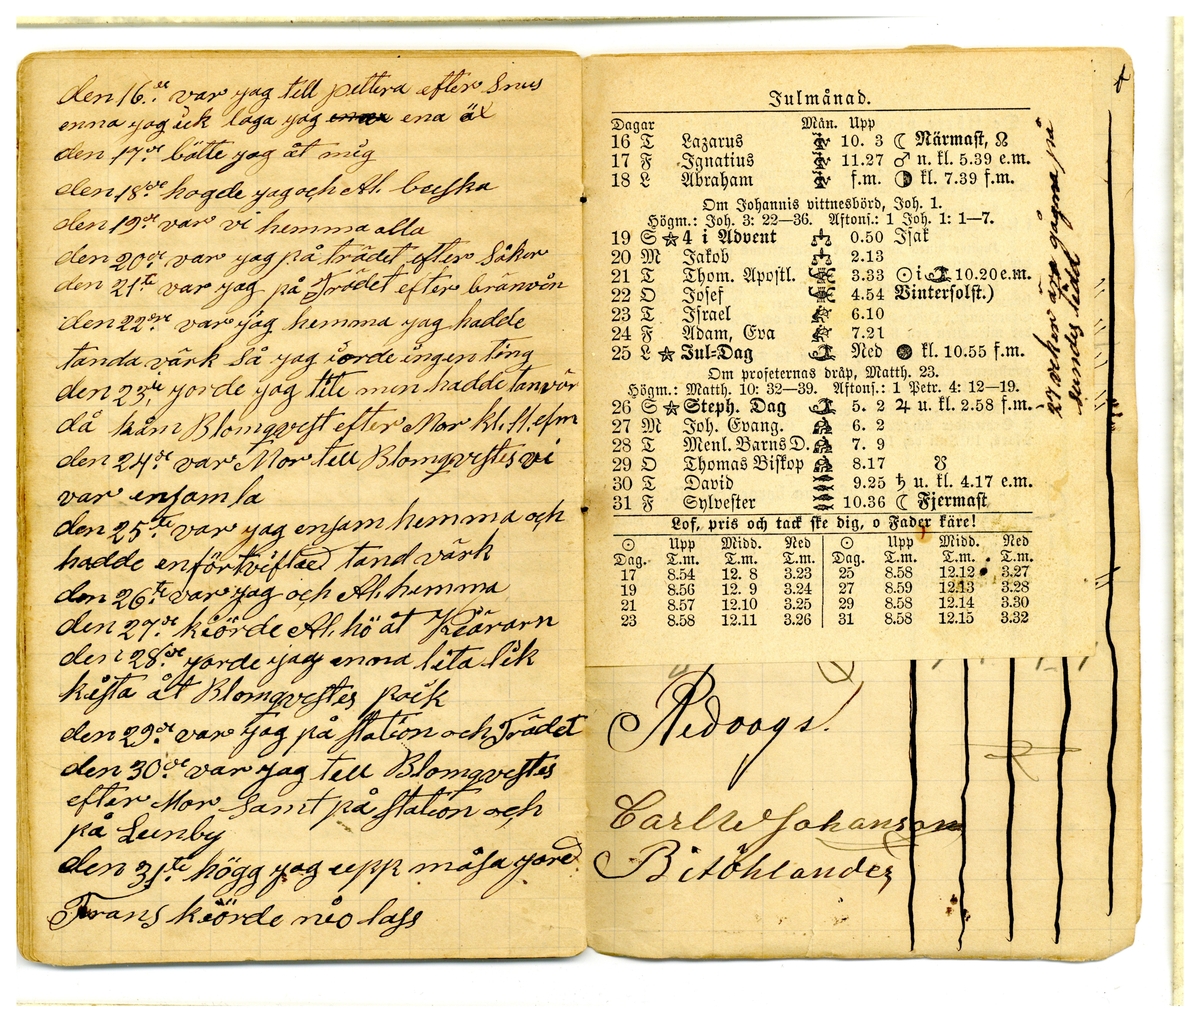 den 16de var jag till pettera efter Snus
enna jag ick laga jag ena äx
den 17de bötte jag åt mig
den 18de hogde jag och Al. buska
den 19de var vi hemma alla
den 20de var jag på trädet efter Såker
den 21te var jag på Trädet efter bränvin
den 22dre var jag hemma jag hadde
tanda värk så jag iorde ingen ting
den 23de jorde jag lite men hadde tanvär
då kåm Blomqvest efter Mor kl. 11. efm
den 24de var Mor tell Blomqvestes vi
var ensamla
den 25te var jag ensam hemma och
hadde en förtviflaed tand värk
den 26te var jag och Al. hemma
den 27de kiörde Al. hö åt Kiärarn
den 28de jorde jag enna lita lik
kista åt Blomqvestes poik
den 29de var jag på Station och Trädet
den 30de var jag tell Blomqvestes
efter Mor Samt på Station och
på Lunby
den 31te högg jag upp måsa jord
Frans kiörde nio lass
Julmånad.
Dagar Mån. Upp
16 T Lazarus 10. 3 ☾ Närmast, ☊
17 F Ignatius 11.27 ♂ n. kl. 5.39 e.m.
18 L Abraham f.m. ◑ kl. 7.39 f.m.
Om Johannis vittnesbörd, Joh. 1.
Högm.: Joh. 3: 22—36. Aftons.: 1 Joh. 1: 1—7.
19 S ☆ 4 i Advent ♎ 0.50 Isak
20 M Jakob ♎ 2.13
21 T Thom. Apostl. 3.33 ☉ i 10.20 e.m.
22 O Josef 4.54 Vintersolst.)
23 T Israel 6.10
24 F Adam, Eva 7.21
25 L ☆ Jul-Dag Ned ● kl. 10.55 f.m.
Om profeternas dråp, Matth. 23.
Högm.: Matth. 10: 32—39. Aftons.: 1 Petr. 4: 12—19.
26 S ☆ Steph. Dag 5. 2 ♃ u. kl. 2.58 f.m.
27 M Joh. Evang. 6. 2
28 T Menl. Barns D. 7. 9
29 O Thomas Biskop 8.17 ☋
30 T David 9.25 ♄ u. kl. 4.17 e.m.
31 F Sylvester 10.36 ☾ Fjermast
Lof, pris och tack ske dig, o Fader käre!
☉ Upp Midd. Ned ☉ Upp Midd. Ned
Dag. T.m. T.m. T.m. Dag. T.m. T.m. T.m.
17 8.54 12. 8 3.23 25 8.58 12.12 3.27
19 8.56 12. 9 3.24 27 8.59 12.13 3.28
21 8.57 12.10 3.25 29 8.58 12.14 3.30
23 8.58 12.11 3.26 31 8.58 12.15 3.32
27 veken
Carl W Johanson